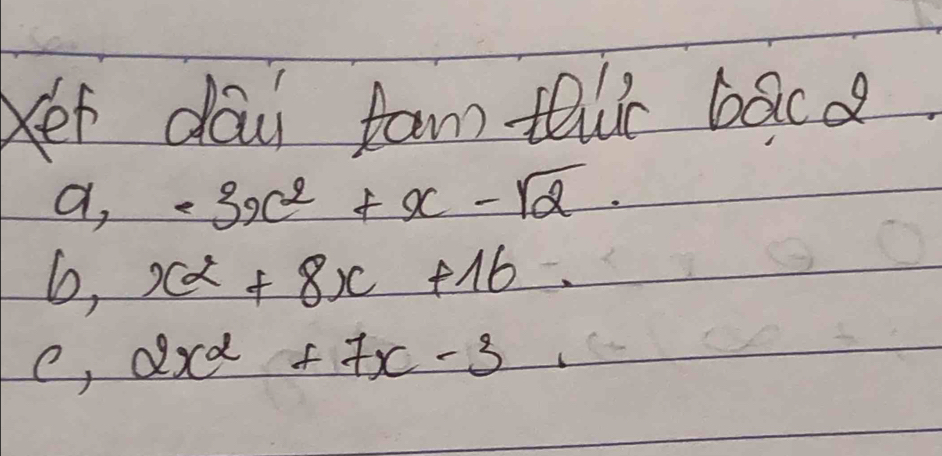 Xét dấu tam thức bậc 2.
a, -3x² + x - √2.
b, x² + 8x + 16.
c, 2x² + 7x - 3.